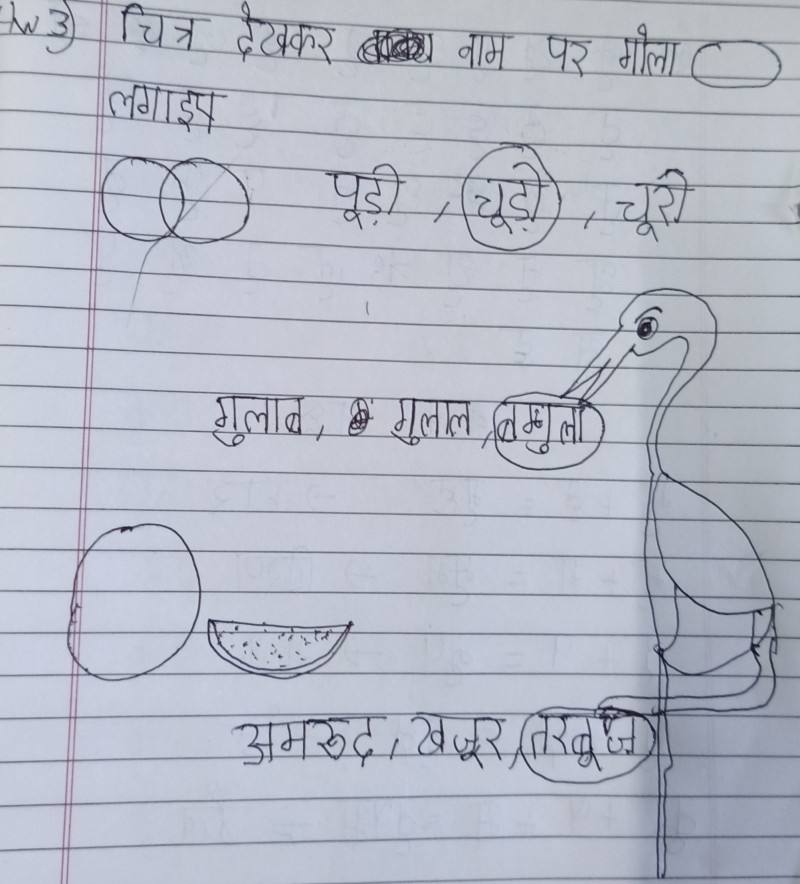 3) चित्र देखकर नाम पर गोला
लगाइए
पूड़ी , चूड़ी , चूरी
गुलाब, गुलाल, बगुला
अमरूद, खजूर, तरबूज